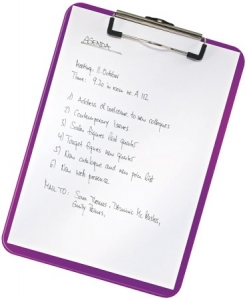 AGENDA:
Meeting: 8. October
Time: 9.30 in room no. A 112
1) Address of welcome to new colleagues
2) Contemporary issues
3) Sales figures last quarter
4) Target figures new quarter
5) New catalogue and new price list
6) New web presence
Mail TO: Sam Thomas, Dominic
Emily